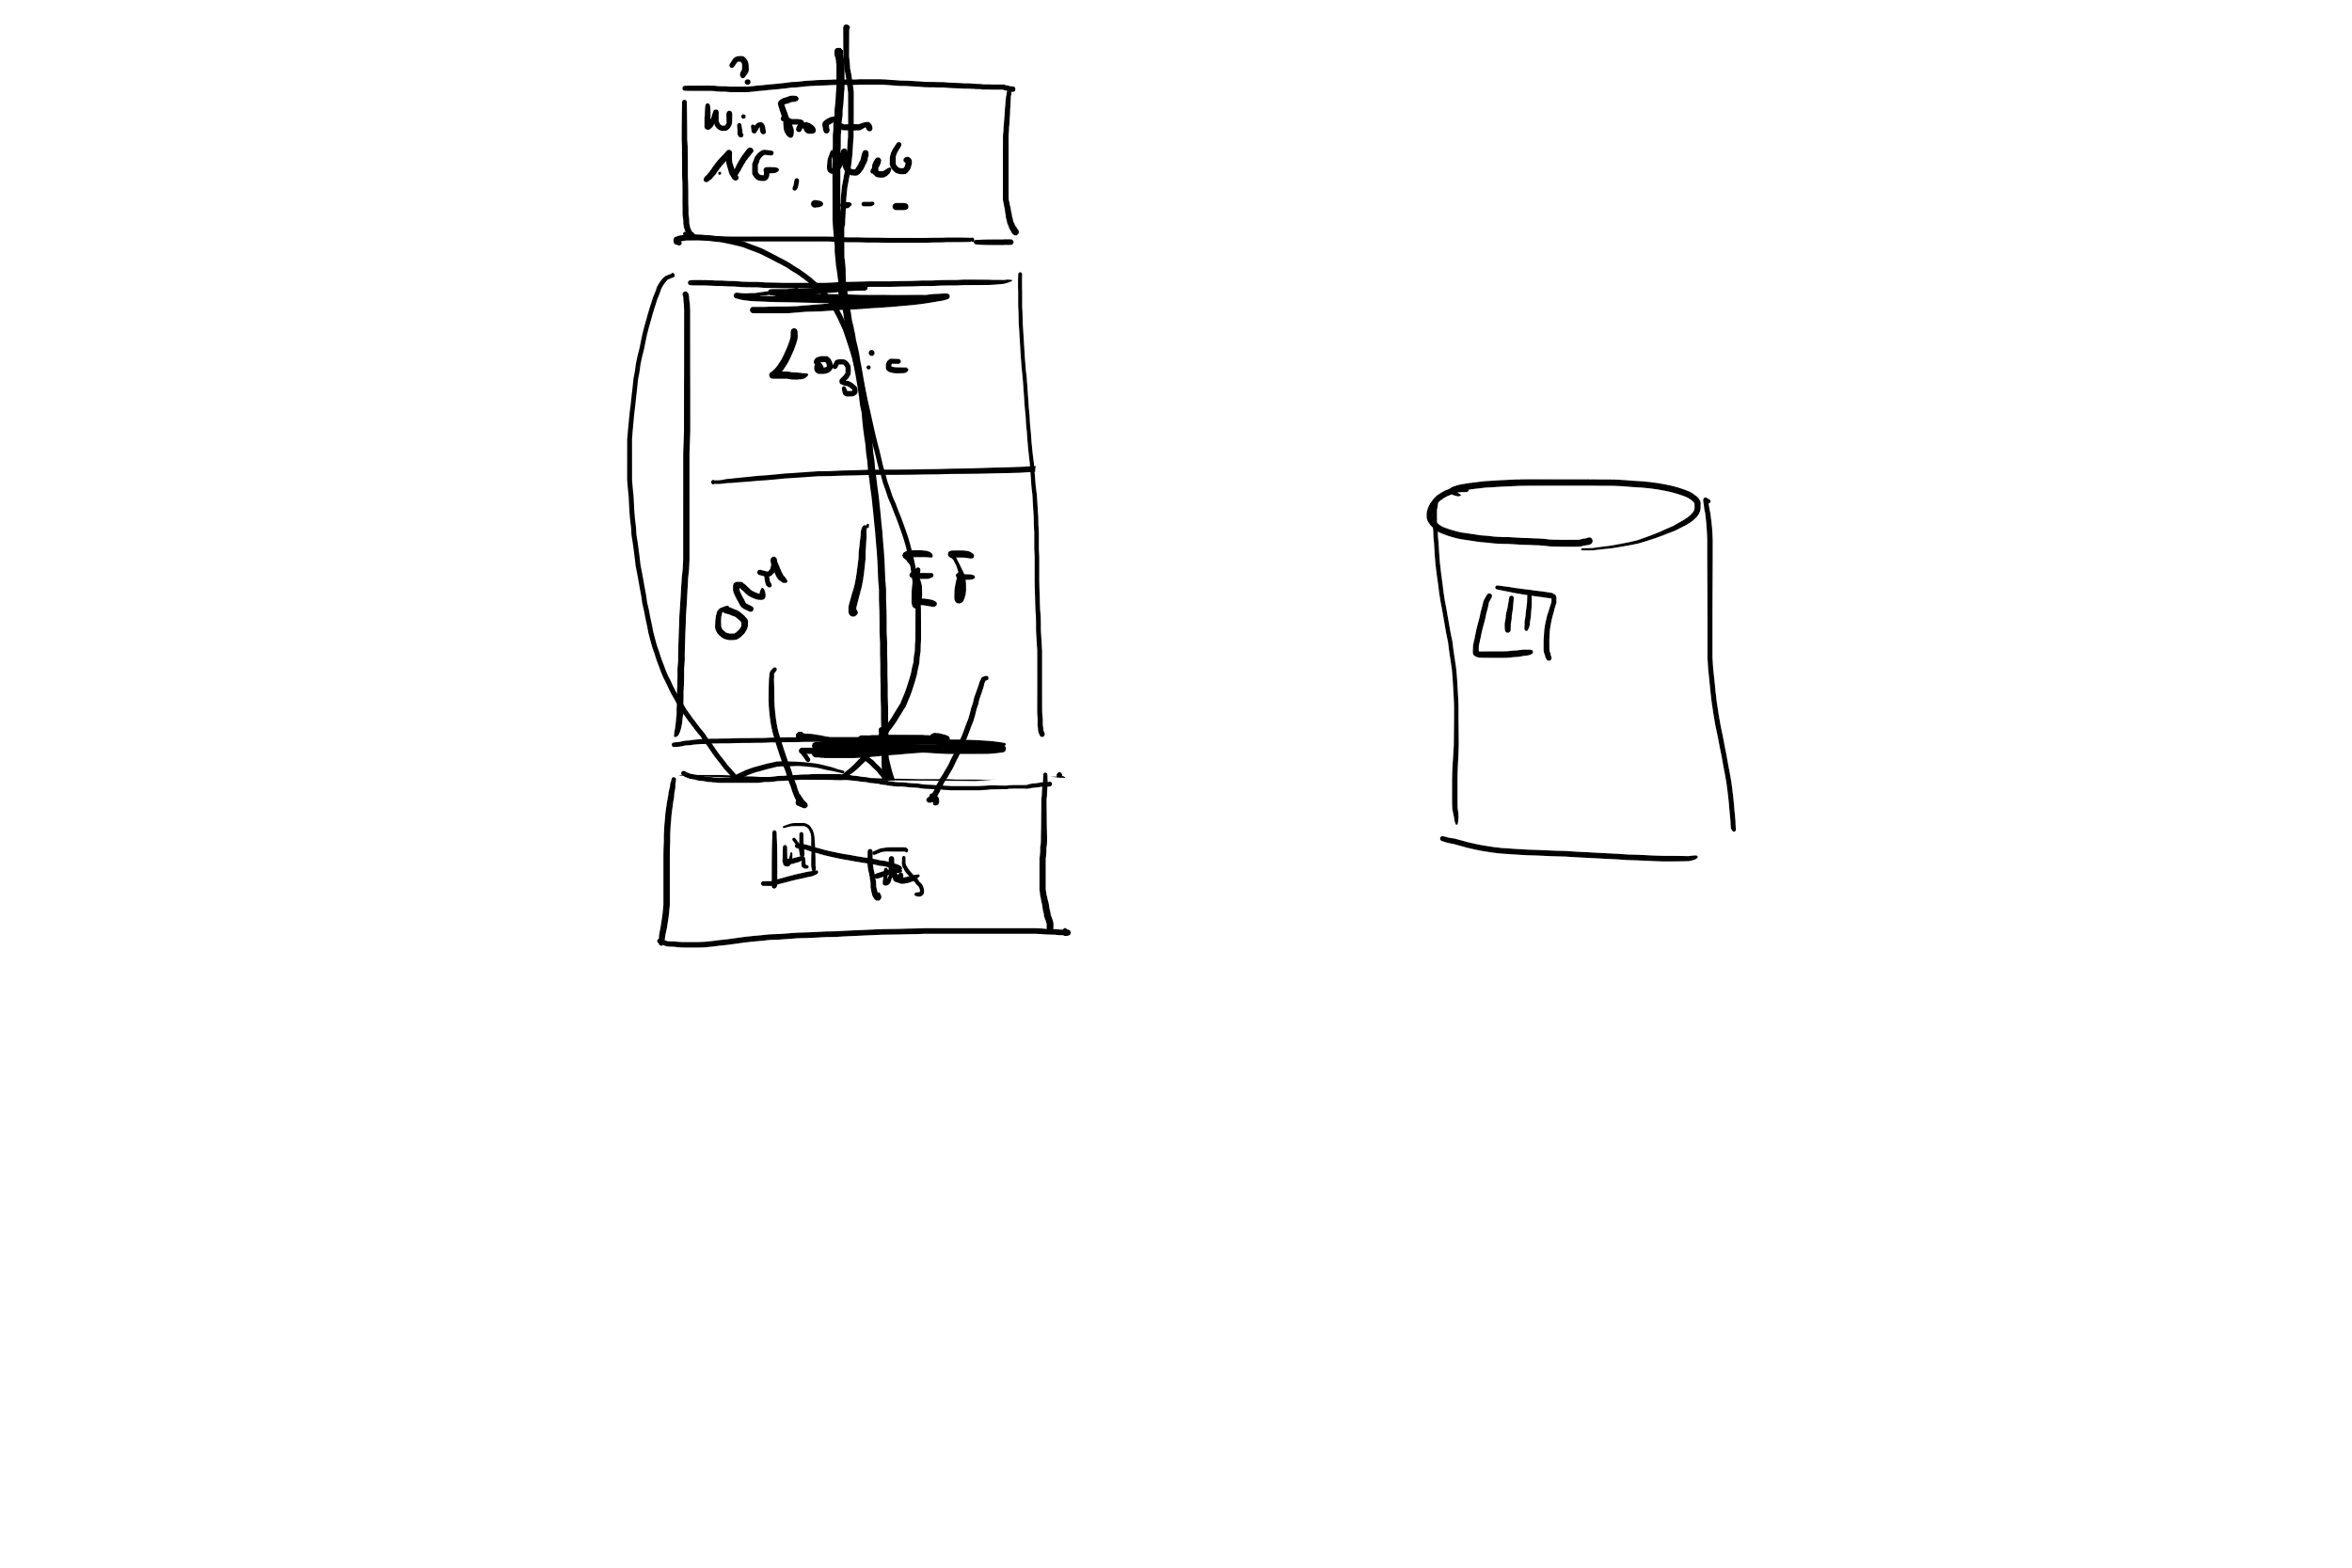 ?
WinForms
NG, Vue
Logic
ORM / EF